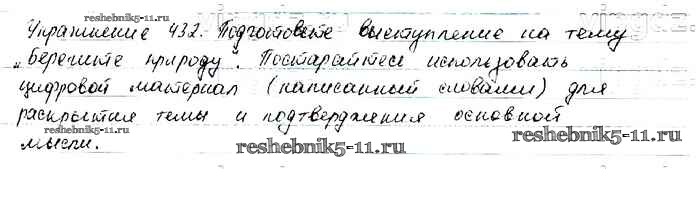 reshebnik5-11.ru
Упражнение 432. Подготовьте выступление на тему
„Берегите природу". Постарайтесь использовать
цифровой материал (написанный словами) для
раскрытия темы и подтверждения основной
reshebnik5-11.ru
мысли.
reshebnik5-11.ru